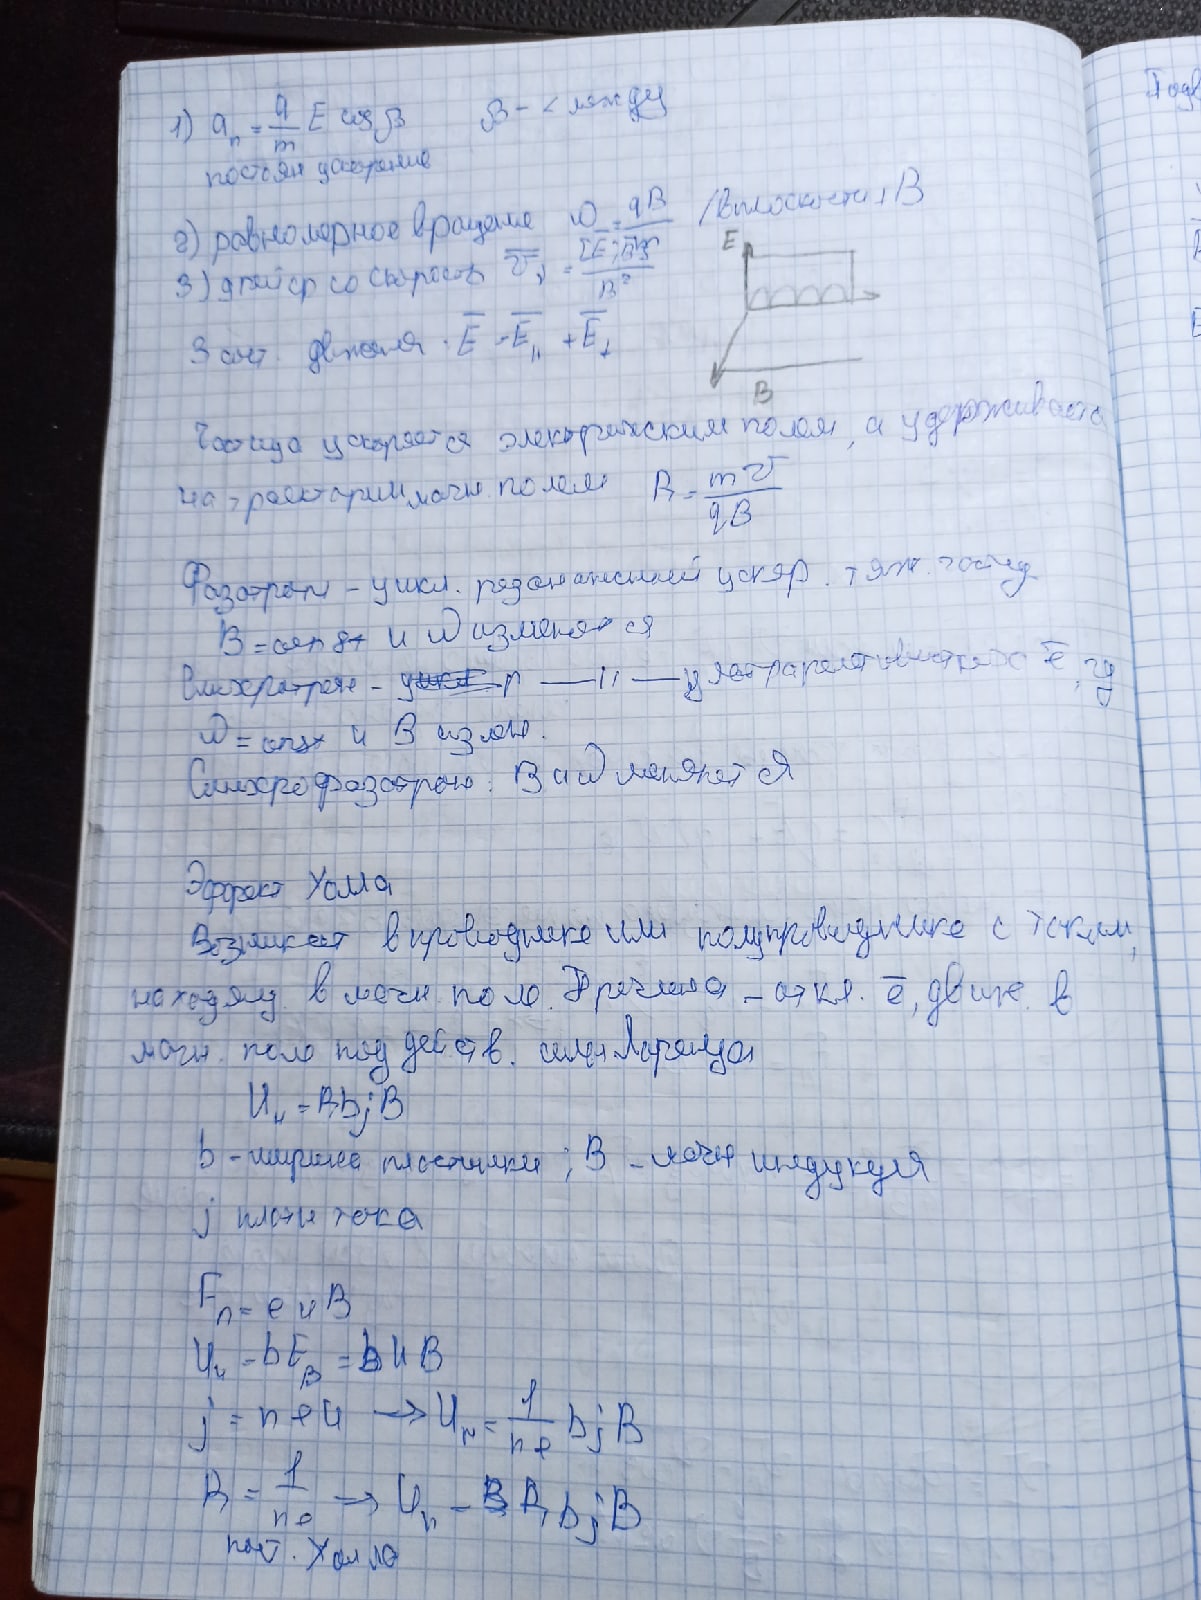 1) a_п = q/m E cos β    β - < между
постоян ускорение
2) равномерное вращение ω = qB/m /в плоскости ⊥ B
3) дрейф со скорость v̅_⊥ = [E̅; B̅]/B²
E
3 сост. движения. E̅ = E̅_∥ + E̅_⊥
B
Частица ускоряется электрическим полем, а удерживается
на траектории магн. полем R = mv/qB
Фазотрон - цикл. резонансный ускор. тяж. частиц
B = const и ω изменяется
Синхротрон - — 11 — ультрарелятивистских e̅, гд
ω = const и B излен.
Синхрофазотрон: B и ω меняются
Эффект Холла
Возникает в проводнике или полупроводнике с током,
находящ. в магн. поле. Причина - откл. e̅, движ. в
магн. поле под действ. силы Лоренца
U_н = RbjB
b - ширина пластинки; B - магн индукция
j плотн тока
F_л = euB
U_н = bE_B = buB
j = neu → U_н = 1/ne bjB
R = 1/ne → U_н = RbjB
пост. Холла